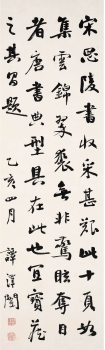 宋思陵書収采甚艱此十頁如
集雲錦翠裘無非驚眩奪目
者唐書典型具在此也宜寶藏
之其昌題
乙亥四月 譚澤闓